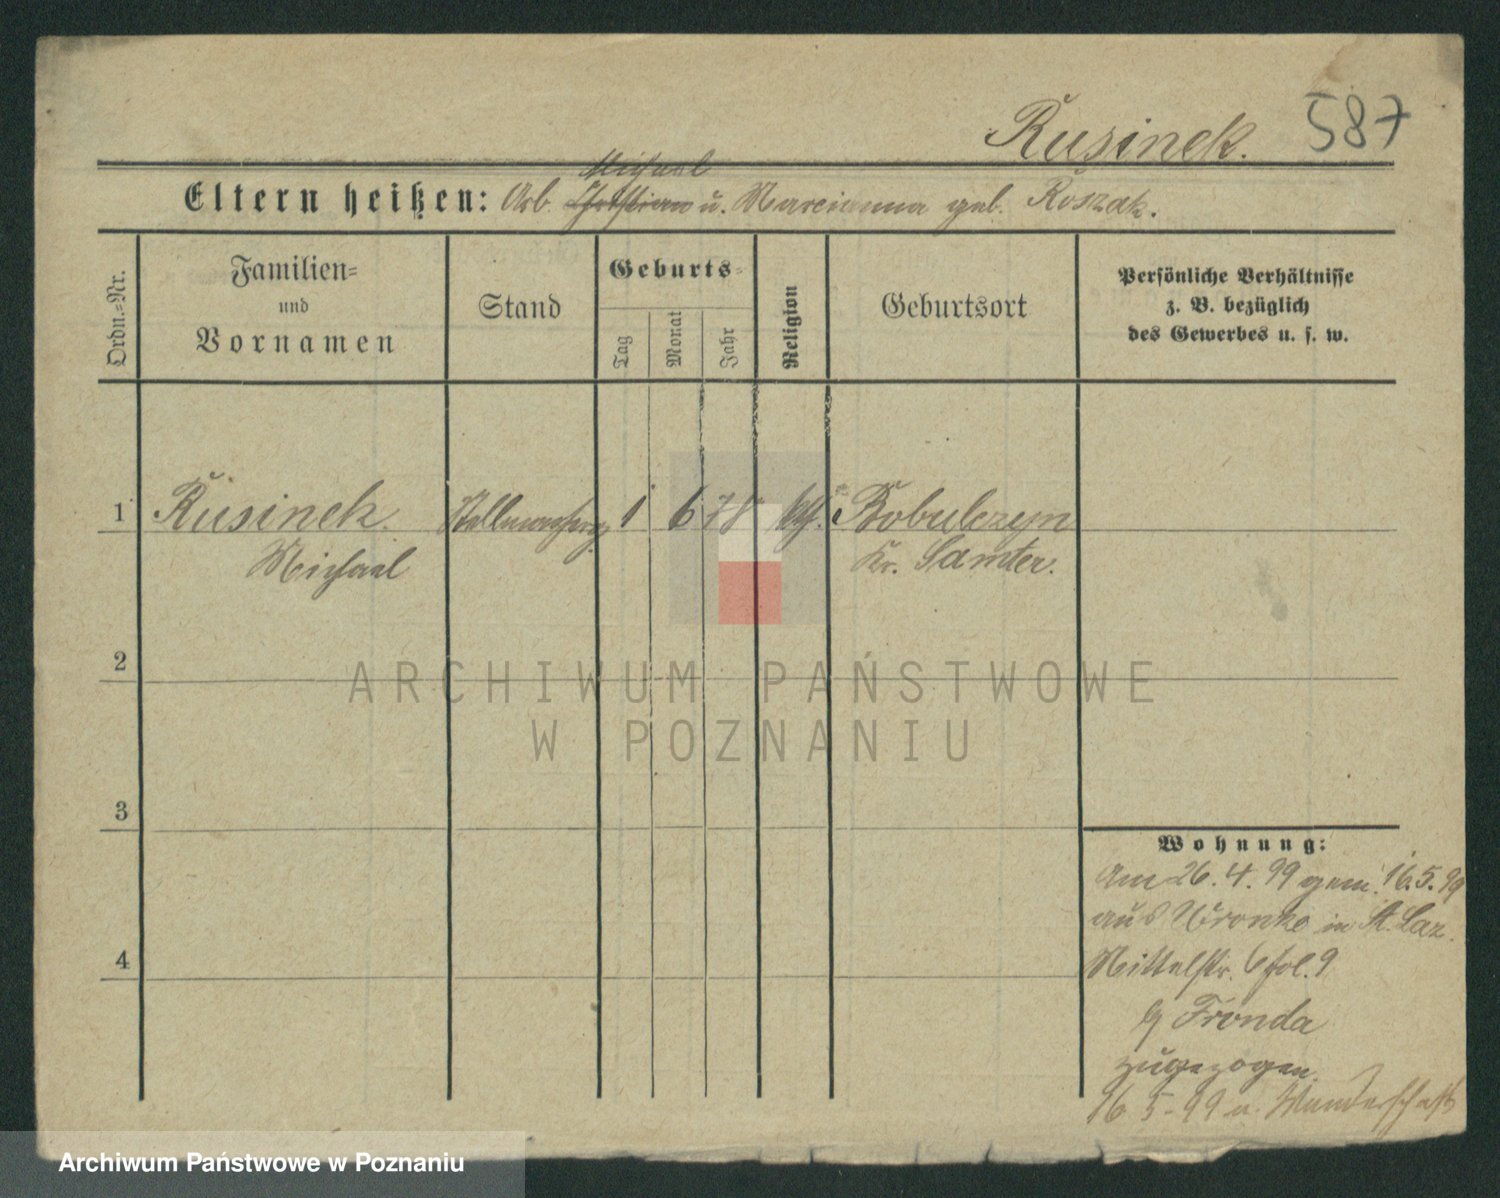 Rusinek. 587
Michael
Eltern heißen: Arb. Christian u. Marcianna geb. Roszak.
Ordn.=Nr.
Familien=
und
Vornamen
Stand
Geburts=
Tag
Monat
Jahr
Religion
Geburtsort
Persönliche Verhältnisse
z. B. bezüglich
des Gewerbes u. s. w.
1 Rusinek. Stellmacherg. 1 6 78 kth. Bobulczyn
Michael Kr. Samter.
2
ARCHIWUM PAŃSTWOWE
W POZNANIU
3
Wohnung:
Am 26.4.99 gem. 16.5.99
aus Wronke in St. Laz.
4
Mittelstr. 6 fol. 9
b Fronda
zugezogen.
16.5.99 a. Wanderschaft
Archiwum Państwowe w Poznaniu